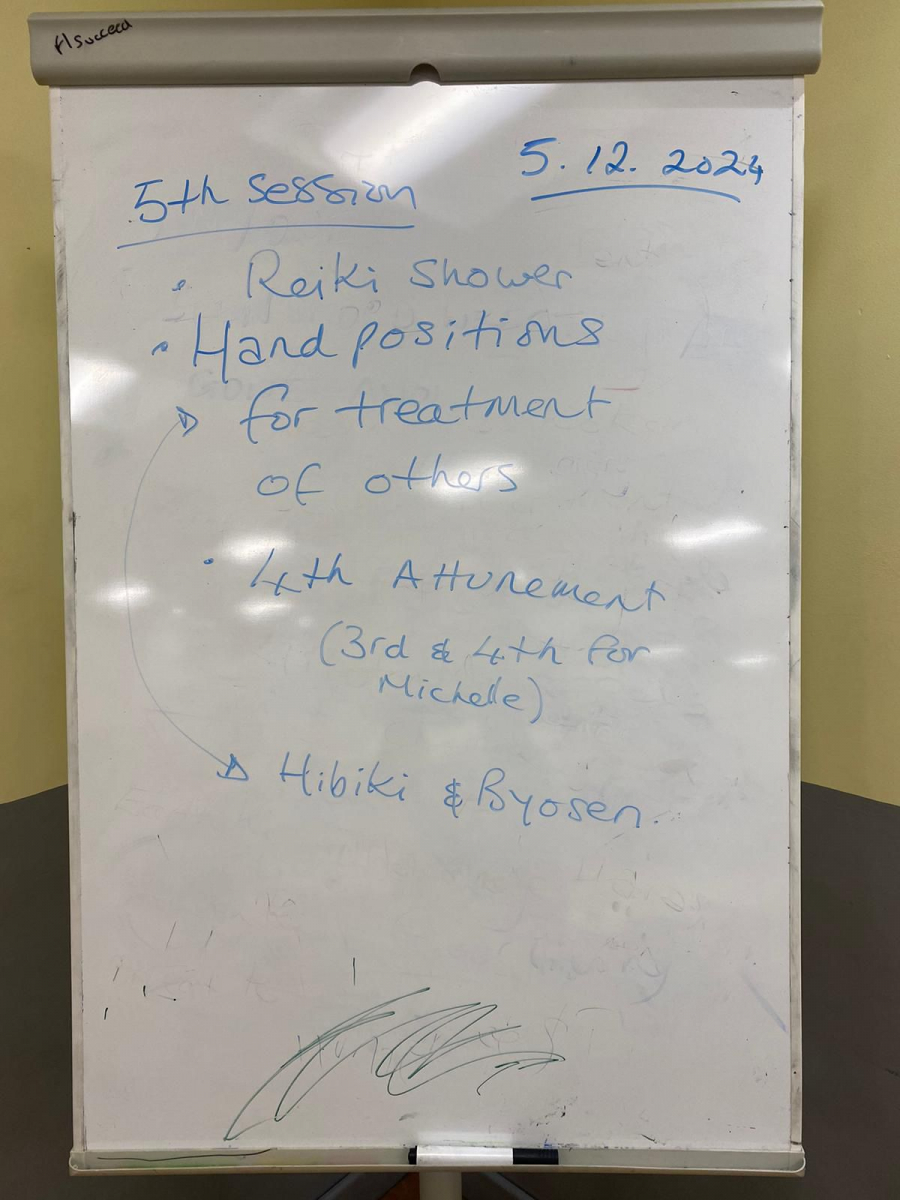 5th session
5.12.2024
• Reiki Shower
• Hand positions
for treatment
of others
• 4th Attunement
(3rd & 4th for
Michelle)
Hibiki & Byosen.